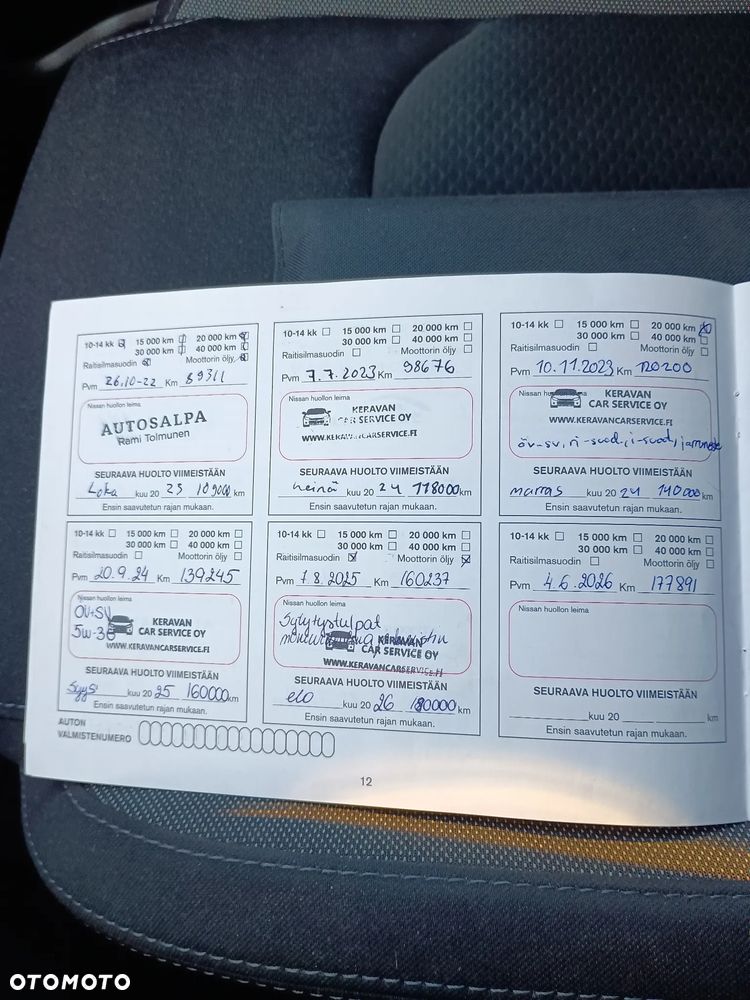 10-14 kk 15 000 km 20 000 km
30 000 km 40 000 km
Raitisilmasuodin Moottorin öljy
Pvm 26.10-22 Km 89311
Nissan huollon leima
AUTOSALPA
Rami Tolmunen
SEURAAVA HUOLTO VIIMEISTÄÄN
Loka kuu 20 23 109000 km
Ensin saavutetun rajan mukaan.
10-14 kk 15 000 km 20 000 km
30 000 km 40 000 km
Raitisilmasuodin Moottorin öljy
Pvm 7.7.2023 Km 98676
Nissan huollon leima
KERAVAN
CAR SERVICE OY
WWW.KERAVANCARSERVICE.FI
SEURAAVA HUOLTO VIIMEISTÄÄN
heinä kuu 20 24 118000 km
Ensin saavutetun rajan mukaan.
10-14 kk 15 000 km 20 000 km
30 000 km 40 000 km
Raitisilmasuodin Moottorin öljy
Pvm 10.11.2023 Km 120200
Nissan huollon leima
KERAVAN
CAR SERVICE OY
WWW.KERAVANCARSERVICE.FI
öv-sv, ri-suod, i-suod, jarruneste
SEURAAVA HUOLTO VIIMEISTÄÄN
marras kuu 20 24 140000 km
Ensin saavutetun rajan mukaan.
10-14 kk 15 000 km 20 000 km
30 000 km 40 000 km
Raitisilmasuodin Moottorin öljy
Pvm 20.9.24 Km 139245
Nissan huollon leima
ÖV+SV
5W-30
KERAVAN
CAR SERVICE OY
WWW.KERAVANCARSERVICE.FI
SEURAAVA HUOLTO VIIMEISTÄÄN
Syys kuu 20 25 160000 km
Ensin saavutetun rajan mukaan.
10-14 kk 15 000 km 20 000 km
30 000 km 40 000 km
Raitisilmasuodin Moottorin öljy
Pvm 7.8.2025 Km 160237
Nissan huollon leima
Sytytystulpat
KERAVAN
CAR SERVICE OY
WWW.KERAVANCARSERVICE.FI
SEURAAVA HUOLTO VIIMEISTÄÄN
elo kuu 20 26 180000 km
Ensin saavutetun rajan mukaan.
10-14 kk 15 000 km 20 000 km
30 000 km 40 000 km
Raitisilmasuodin Moottorin öljy
Pvm 4.6.2026 Km 177891
Nissan huollon leima
SEURAAVA HUOLTO VIIMEISTÄÄN
kuu 20 km
Ensin saavutetun rajan mukaan.
AUTON
VALMISTENUMERO
12
OTOMOTO